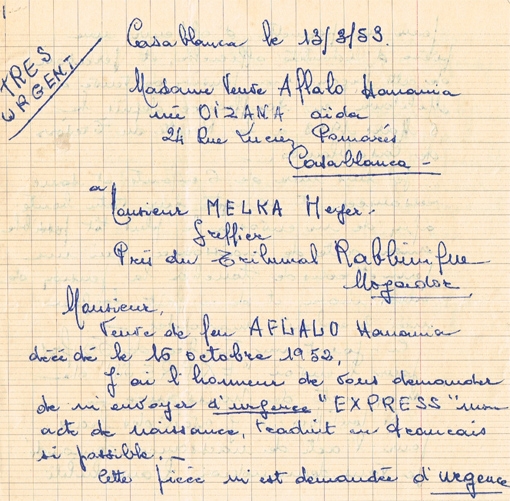 TRES
URGENT
Casablanca le 13/3/53.
Madame Veuve Aflalo Hanania
née OIZANA aïda
24 Rue Lucien Pomarés
Casablanca -
a
Monsieur MELKA Meyer.
Greffier
Prés du Tribunal Rabbinique
Mogador
Monsieur,
Veuve de feu AFLALO Hanania
décédé le 16 octobre 1952,
J'ai l'honneur de vous demander
de m'envoyer d'urgence "EXPRESS" mon
acte de naissance, traduit en francais
si possible. -
Cette pièce m'est demandée d'urgence